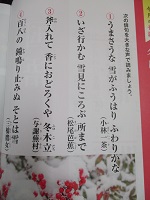 次の俳句を大きな声で読みましょう。
①うまさうな 雪がふうはり ふわりかな
(小林一茶)
②いざ行かむ 雪見にころぶ 所まで
(松尾芭蕉)
③斧入れて 香におどろくや 冬木立
(与謝蕪村)
④百八の 鐘鳴り止みぬ そとは雪